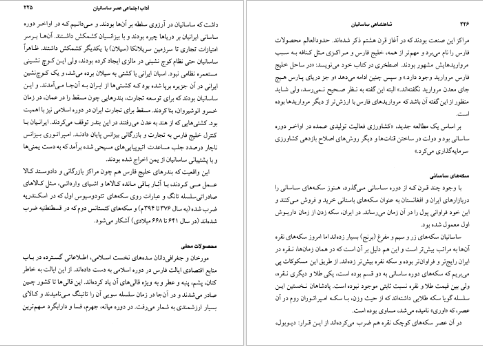 ۲۴۶ شاهنشاهی ساسانیان
مراکز این صنعت بودند که در آغاز قرن هشتم ذکر شده‌اند. حدودالعالم محصولات
فارس را نام می‌برد و مهم‌تر از همه، خلیج فارس و مرکزی مثل کنافه به سبب
مرواریدهایش مشهور بودند. اصطخری در کتاب خود می‌نویسد: «در ساحل خلیج
فارس مروارید وجود دارد.» و سپس چنین ادامه می‌دهد «و جز دریای پارس هیچ
جای معدن مروارید نگفته‌اند.» البته این گفته به نظر صحیح نمی‌رسد، ولی شاید
منظور از این گفته آن باشد که مرواریدهای فارس با ارزش‌تر از دیگر مرواریدها بوده
است.
بر اساس یک مطالعه جدید، «کشاورزی فعالیت تولیدی عمده در اواخر دوره
ساسانی بود و دولت در ساختن قنات‌ها و دیگر روش‌های اصلاح بازدهی کشاورزی
سرمایه‌گذاری می‌کرد.»
سکه‌های ساسانی
با وجود چند قرن که از دوره ساسانی می‌گذرد، هنوز سکه‌های ساسانی را
دربازارهای ایران و افغانستان به عنوان سکه‌های باستانی خرید و فروش می‌کنند و
این خود فراوانی پول را در آن زمان می‌رساند. در ایران، سکه زدن از زمان داریوش
اول معمول شده بود.
ساسانیان سکه‌های زر و سیم و مفرغ (برنج) بسیار زده‌اند اما امروز سکه‌های نقره
آن‌ها به مراتب بیش‌تر است و این هم دلیل بر آن است که در همان زمان‌ها، نقره در
ایران رایج‌تر و فراوان‌تر بوده و سکه نقره بیش‌تر زده‌اند. از طریق این مسکوکات پی
می‌بریم که سکه‌های دوره ساسانی به دو قسم بوده است، یکی طلا و دیگری نقره،
ولی بین قیمت طلا و نقره نسبت ثابتی موجود نبوده است. پادشاهان نخستین این
سلسله گویا سکه طلایی داشته‌اند که از حیث وزن، با سکه امپراتوران روم در آن
عصر، که (اوری) نامیده می‌شد، مساوی بوده است.
در آن عصر سکه‌های کوچک نقره هم ضرب می‌کرده‌اند از این قرار: دیوبول،
آداب اجتماعی عصر ساسانیان ۲۲۵
داشت که ساسانیان در آرزوی سلطه بر آن‌ها بودند. و می‌دانیم که در اواخر دوره
ساسانی ایرانیان بر دریاها چیره بودند و با بیزانسیان کشمکش داشتند. آن‌ها بر سر
امتیازات تجاری تا سرزمین سریلانکا (سیلان) با یکدیگر کشمکش داشتند. ظاهراً
ساسانیان حتی نظام کوچ نشینی در مالزی ایجاد کرده بودند، ولی این کوچ نشینی
مستعمره نظامی نبود. اسبان ایرانی با کشتی به سیلان برده می‌شد، و یک کوچ‌نشین
ایرانی در آن جزیره برپا شده بود که کشتی‌ها از ایران به آن‌جا می‌آمدند. و این
ساسانیان بودند که برای توسعه تجارت، بندرهایی چون مسقط را در عمان، در زمان
خسرو انوشیروان، بنا کردند. مسقط برای تجارت ایران در دوره اسلامی نیز با اهمیت
بود. کشتی‌هایی که از هند به عدن می‌رفتند در این بندر توقف می‌کردند. ایرانیان با
کنترل خلیج فارس به تجارت و بازرگانی بیزانس پایان دادند. امپراتوری بیزانس
ناچار درصدد جلب مساعدت اتیوپیایی‌های مسیحی شده برآمد که به دست یمنی‌ها
و با پشتیبانی ساسانیان از یمن اخراج شده بودند.
این واقعیت که بندرهای خلیج فارس هم چون مراکز بازرگانی و دادوستد کالا
عمل می‌کردند، با آثار باقی مانده کالاها و اشیای وارداتی، مثل کالاهای
صادراتی سلسله تانگ و عبارات روی سکه‌های تئودوسیوس اول که در اسکندریه
ضرب شده (به سال ۳۷۶ تا ۳۹۴م) و سکه‌های کنستانس دوم که در قسطنطنیه ضرب
شده‌اند (در سال ۶۴۱ تا ۶۶۸ میلادی) آشکار می‌شود.
محصولات محلی
مورخان و جغرافی‌دانان سده‌های نخست اسلامی، اطلاعاتی گسترده در باب
منابع اقتصادی ایالت فارس در دوره اسلامی به دست داده‌اند. از این ایالت به خاطر
کتان، پشم، پنبه و عطر و به ویژه قالی‌های آن یاد کرده‌اند. این قالی‌ها تا کشور چین
صادر می‌شدند و در آن‌جا در زمان سلسله سویی آن را تانینگ می‌نامیدند و کالای
بسیار ارزشمندی به شمار می‌رفت. در دوره میانه، جهرم، فسا و دارابگرد مهم‌ترین